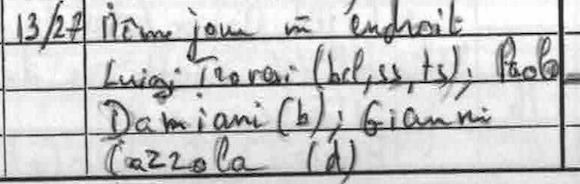 13/27 Même jour m̄ endroit
Luigi Trovesi (bcl, ss, ts); Paolo
Damiani (b); Gianni
Cazzola (d)